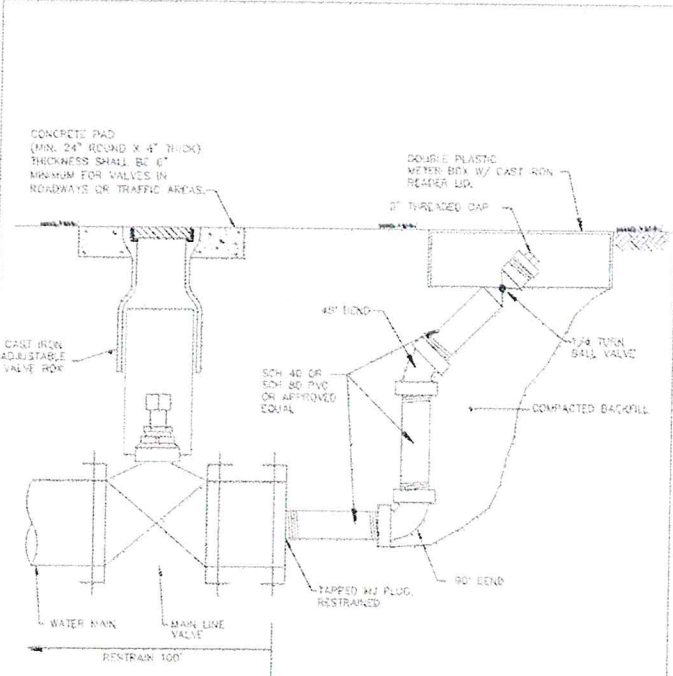 CONCRETE PAD
(MIN. 24" ROUND X 4" THICK)
THICKNESS SHALL BE 6"
MINIMUM FOR VALVES IN
ROADWAYS OR TRAFFIC AREAS.
DOUBLE PLASTIC
METER BOX W/ CAST IRON
READER LID.
2" THREADED CAP
CAST IRON
ADJUSTABLE
VALVE BOX
45° BEND
1/4 TURN
BALL VALVE
SCH 40 OR
SCH 80 PVC
OR APPROVED
EQUAL
COMPACTED BACKFILL
TAPPED MJ PLUG,
RESTRAINED
90° BEND
WATER MAIN
MAIN LINE
VALVE
RESTRAIN 100'